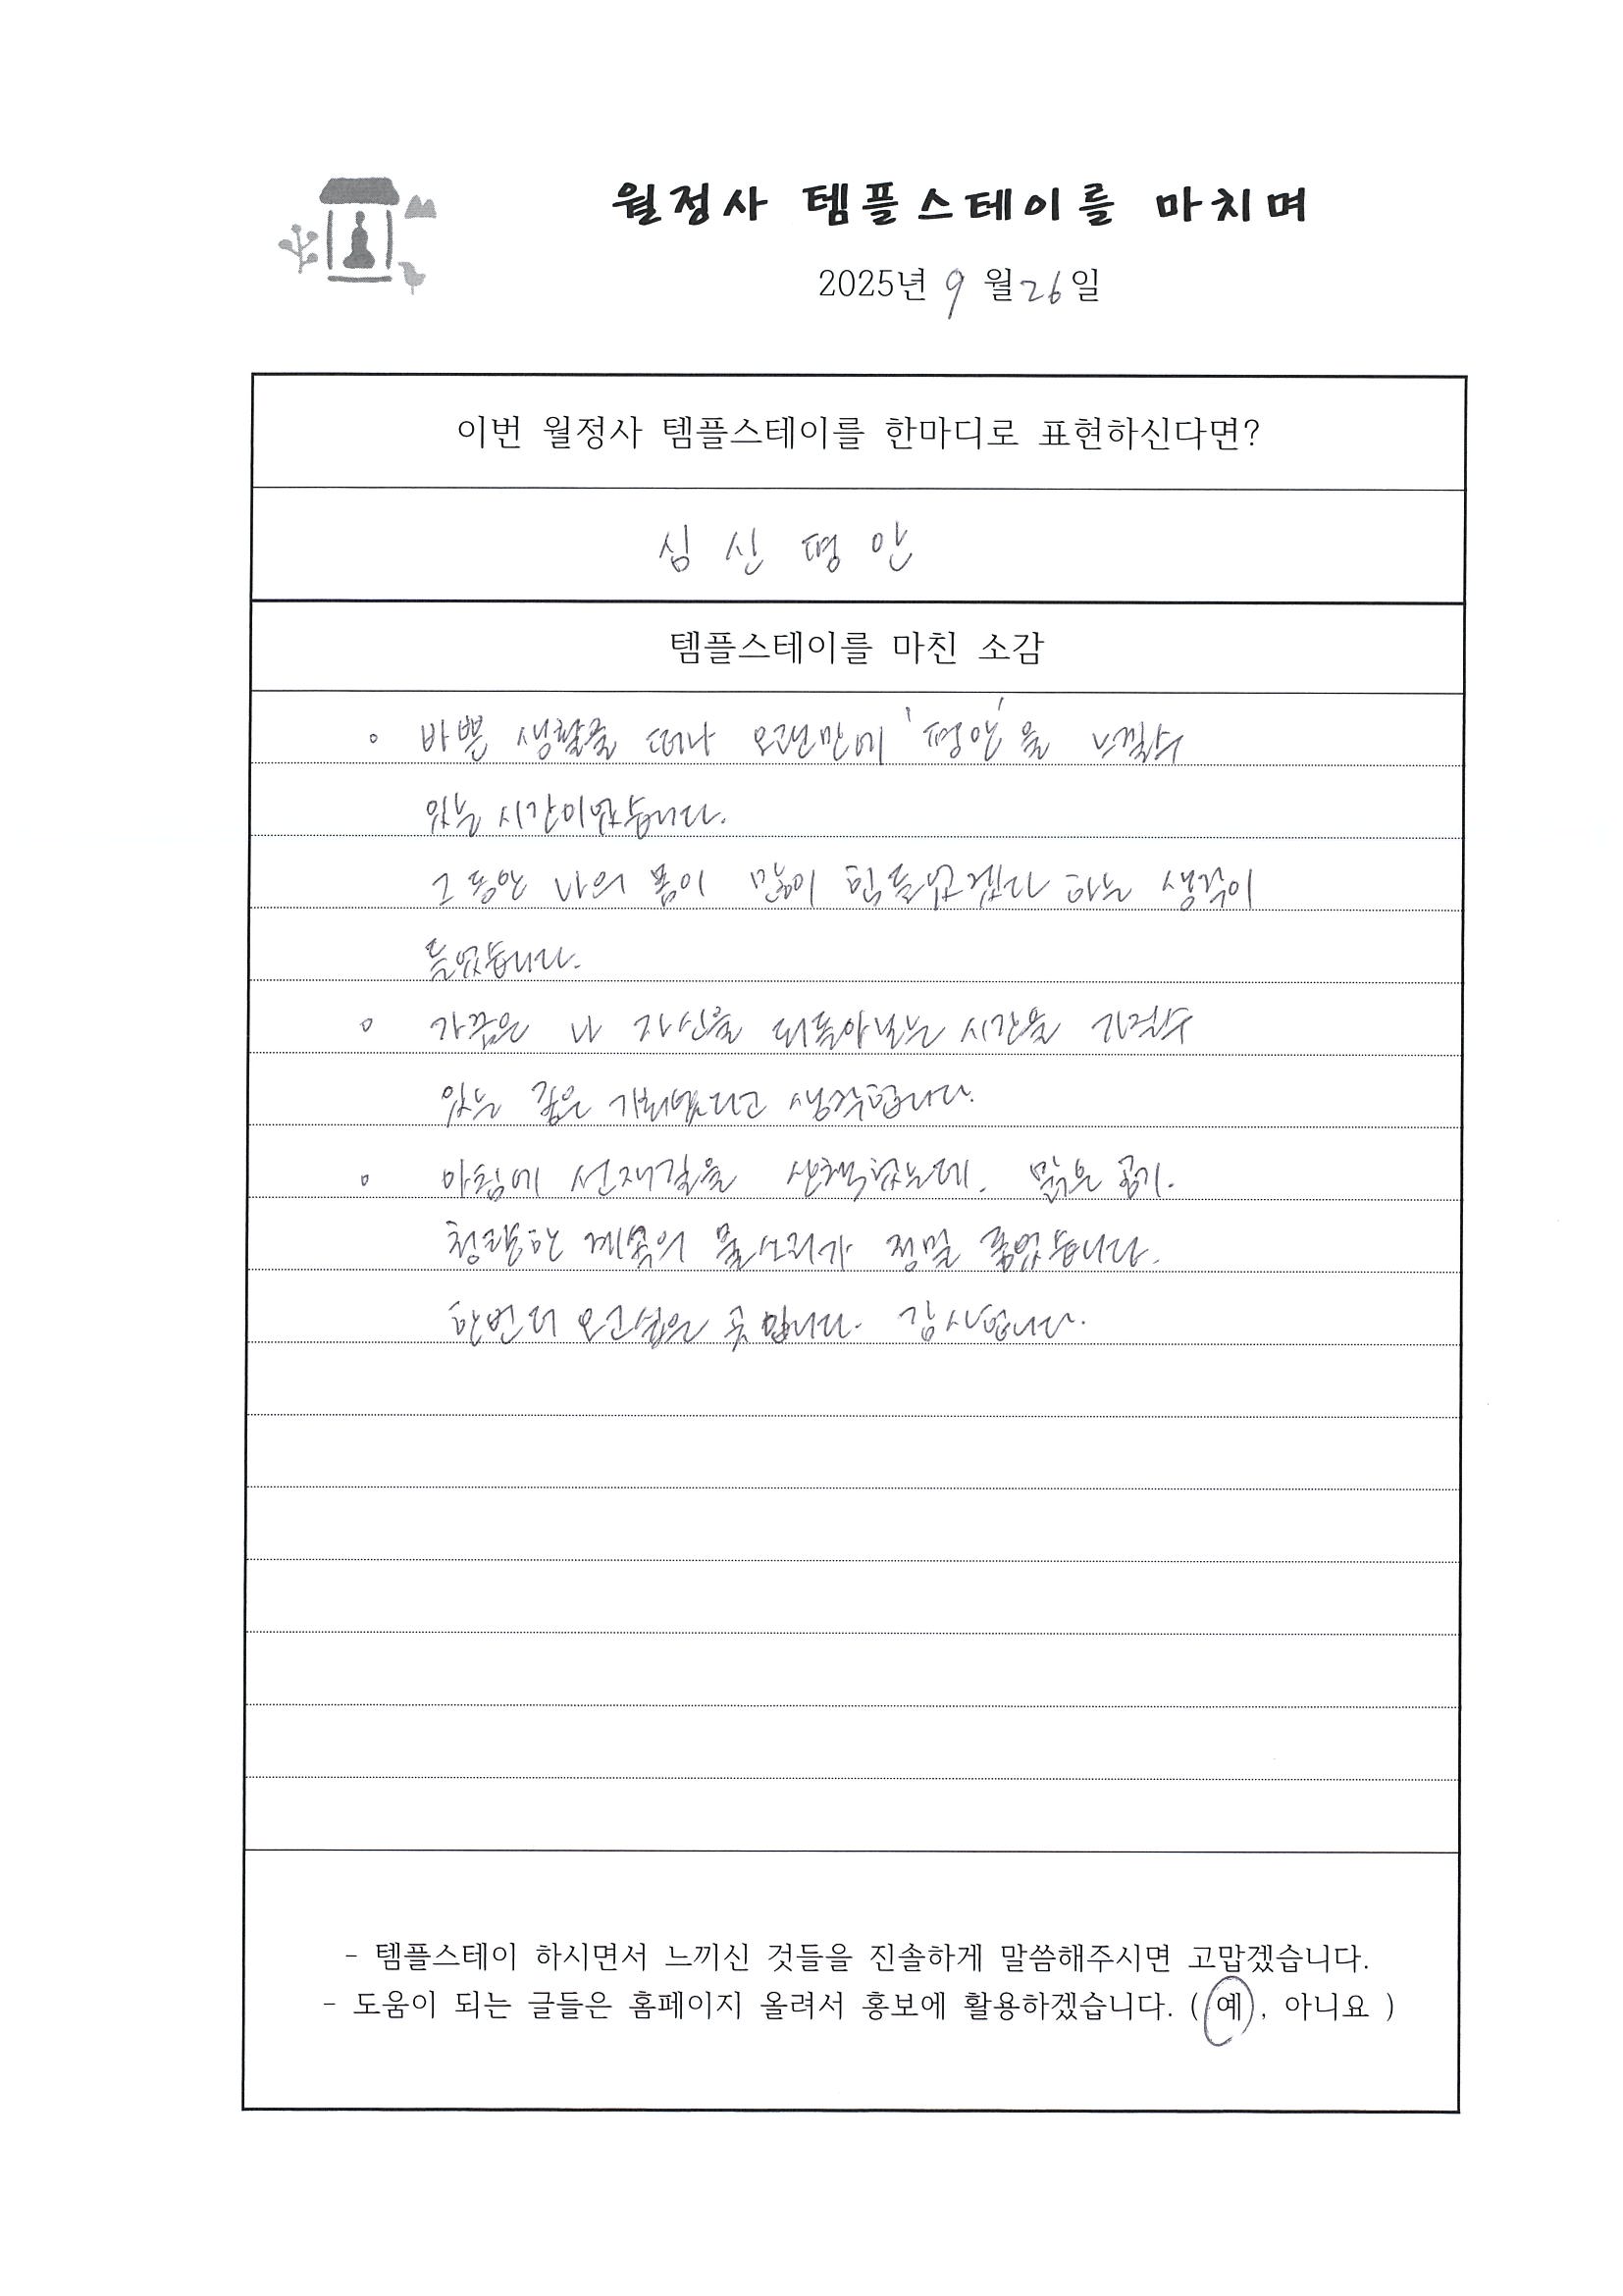 월정사 템플스테이를 마치며
2025년 9월 26일
이번 월정사 템플스테이를 한마디로 표현하신다면?
심신평안
템플스테이를 마친 소감
◦ 바쁜 생활을 떠나 오랜만에 '평안'을 느낄수
있는 시간이었습니다.
그동안 나의 몸이 많이 힘들었겠다 하는 생각이
들었습니다.
◦ 가끔은 나 자신을 뒤돌아보는 시간을 가질수
있는 좋은 기회였다고 생각합니다.
◦ 아침에 선재길을 산책했는데, 맑은 공기,
청량한 계곡의 물소리가 정말 좋았습니다.
한번 더 오고싶은 곳입니다. 감사합니다.
- 템플스테이 하시면서 느끼신 것들을 진솔하게 말씀해주시면 고맙겠습니다.
- 도움이 되는 글들은 홈페이지 올려서 홍보에 활용하겠습니다. ( 예, 아니요 )